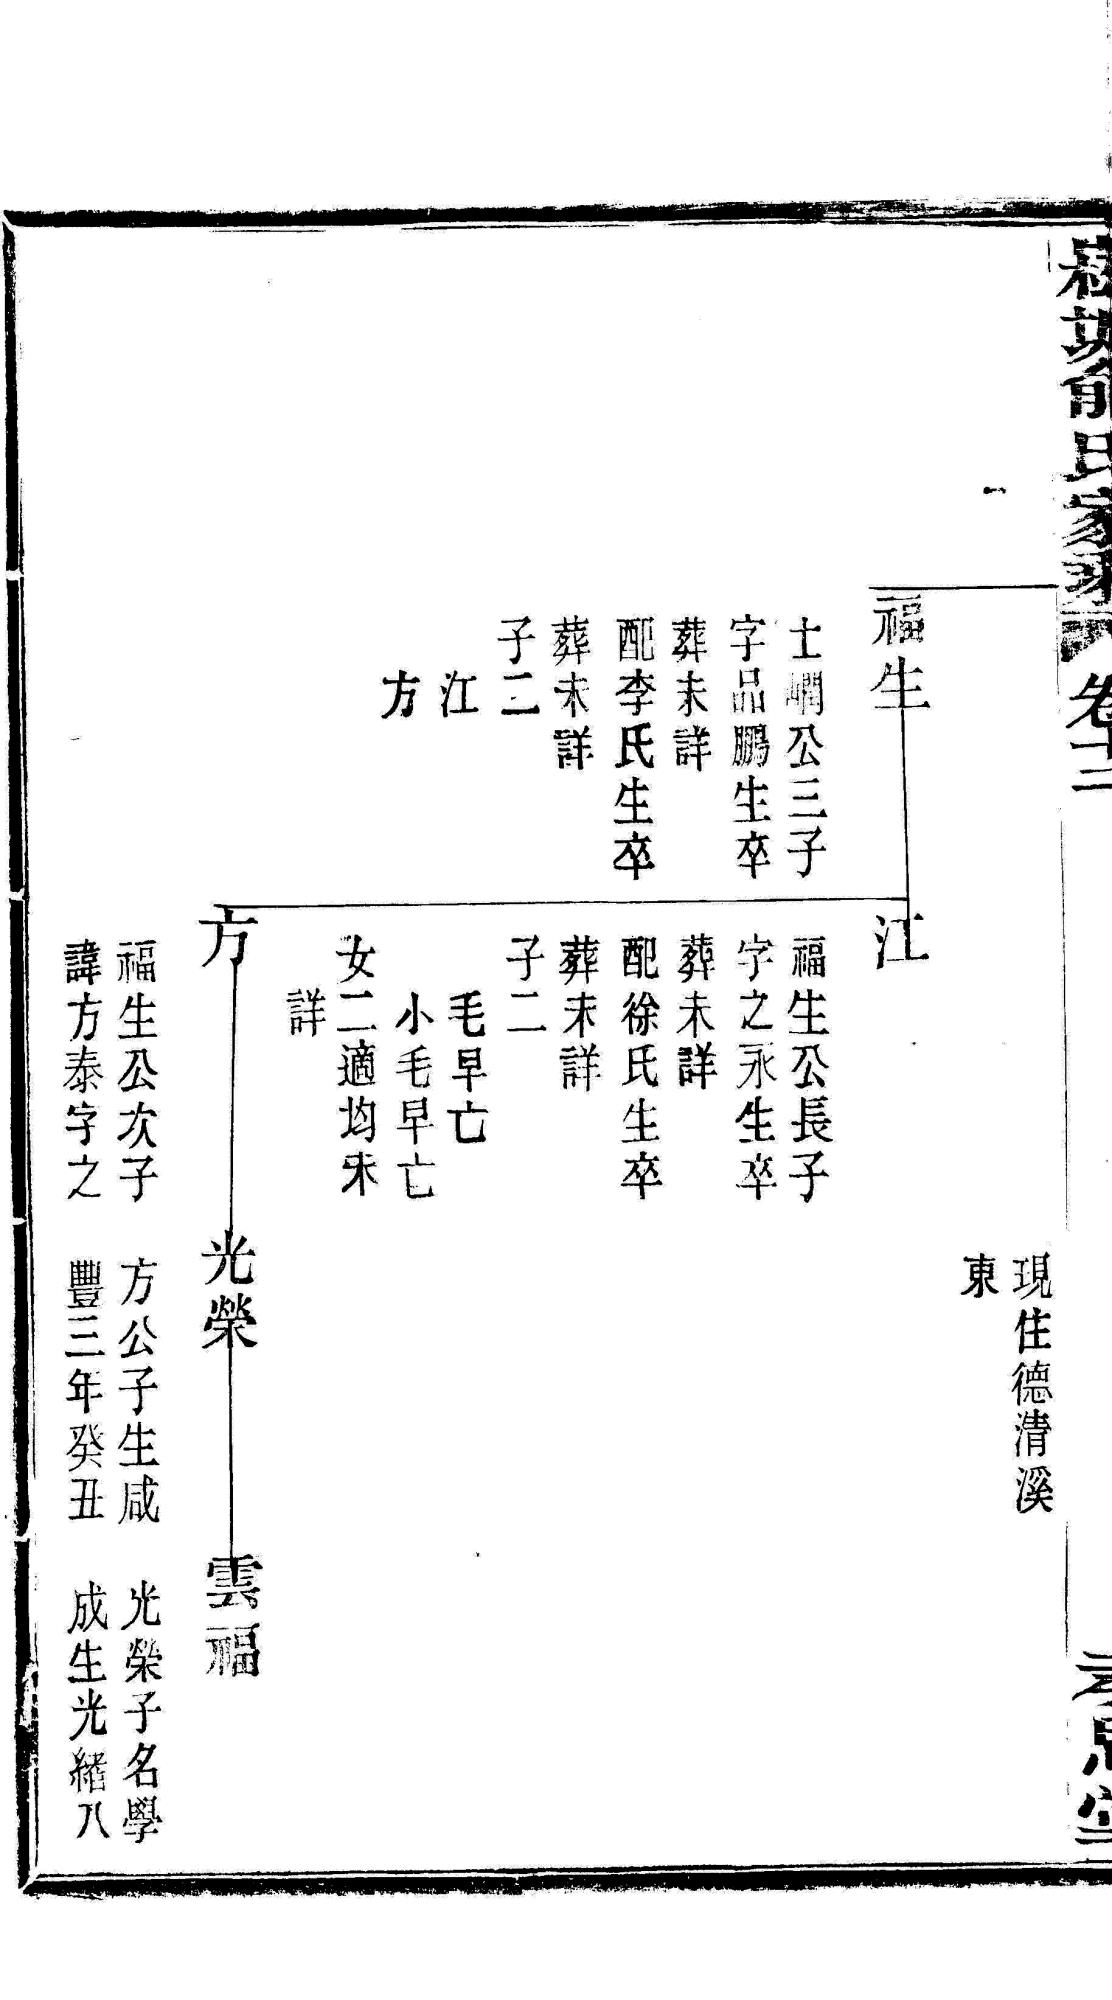 氏家乘
卷十二
孝思堂
現住德清溪
東
福生
士嵋公三子
字品鵬生卒
葬未詳
配李氏生卒
葬未詳
子二
江
方
江
福生公長子
字之永生卒
葬未詳
配徐氏生卒
葬未詳
子二
毛早亡
小毛早亡
女二適均未
詳
方
福生公次子
諱方泰字之
光榮
方公子生咸
豐三年癸丑
雲福
光榮子名學
成生光緒八